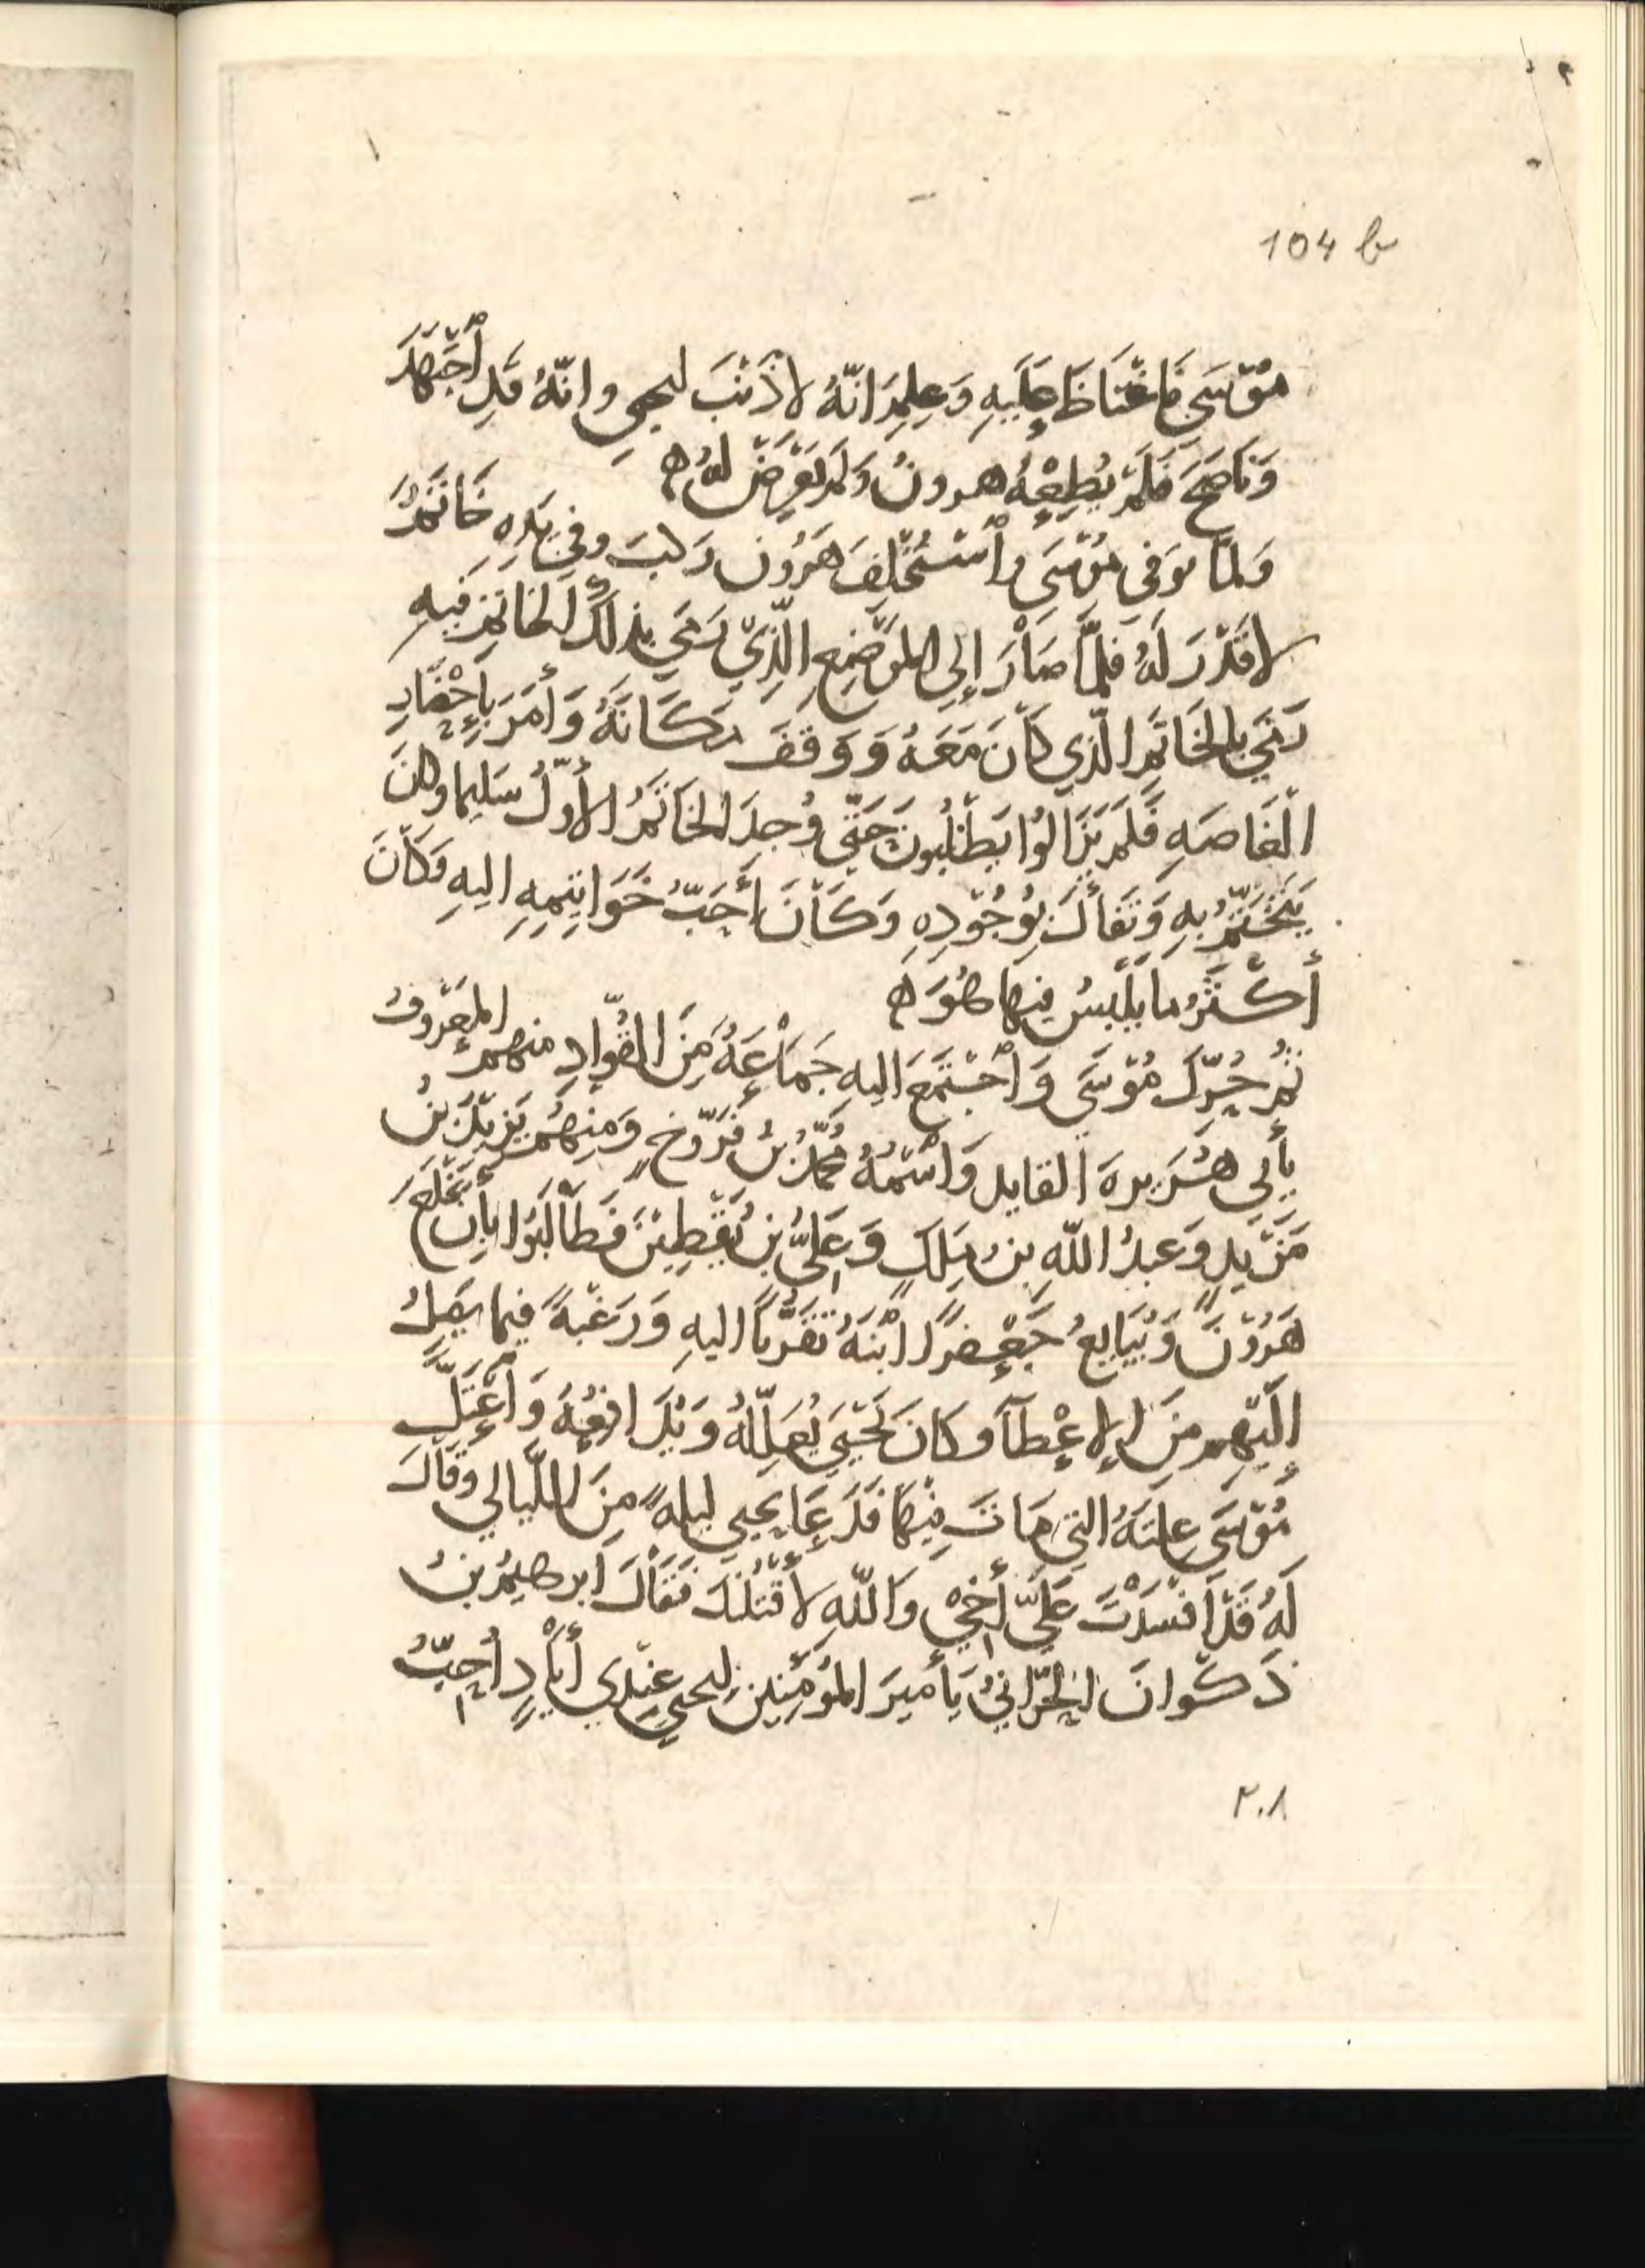 104 b
مُوْسَى فَاغْتَاظَ عَلَيهِ وَعِلِمَ انّهُ لا ذَنْبَ ليحيى وانّهُ قَدِ اُجْتَهَدَ
وَنَاصَحَ فَلَمْ يُطِعْهُ هرونُ وَلَمْ يَعْرِضْ لهُ ه
وَلما توفى مُوْسَى وأسْتُخْلِفَ هَرُون رَكبَ وفي يَدِهِ خَاتَمٌ
لا قَدْرَ لَهُ فلمَّا صَاْرَ إلى الموْضِعِ الّذِيْ رَمَى بذلكَ الخاتمِ فيهِ
رَمَى بالخَاتَمِ الّذي كَاْنَ مَعَهُ وَوَقفَ مَكَانَهُ وَأمَرَ بِإحْضَارِ
الْغَاصَهِ فَلَمْ يَزَالوُا يَطْلُبُونَ حَتّى وُجِدَ الخَاتَمُ الأوّلُ سَلِيما وكانَ
يَتَخَتَّمُ بهِ وَتَفَأّلَ بِوُجُوْدِهِ وَكَاْنَ أحَبُّ خَوَاتِيمِهِ اليهِ وَكَاْنَ
أكْثَرُ ما يَلْبَسُ فيها هُوَ ه
ثُمَّ حُرّكَ مُوْسَى وَاُجْتَمَعَ اليهِ جَمَاْعَةٌ مِنَ القُوّادِ منهم المعْرُوفُ
بأبي هُرَيرهَ القايد وَاسْمُهُ مُحمّدُ بنُ فَرّوخٍ وَمِنهُمْ يَزِيْدُ بنُ
مَزْيدٍ وَعبدُ اللّهِ بنُ مَلكٍ وَعَليُّ بنُ يَقْطِيْنَ فَطَاْلَبُوْا بأن يَخْلَعَ
هَرُوْنَ وَيُبَايعُ جَعْفرًا ابْنَهُ تَقَرُّبًا اليهِ وَرَغْبهً فيما يَصِلُ
إلَيْهِم مِنَ الإعْطآ وكانَ يَحْيَى يُعَلِّلُهُ وَيُدَافِعُهُ وَاُعْتَلَّ
مُوْسَى عِلتَهُ التي مَاتَ فِيْهَا فَدَعَا يحيى ليلهً مِنَ اللّيالي وقَاْلَ
لَهُ قَدْ اَفْسَدْتَ عَلَيّ أخِيْ وَاللّهِ لأقْتُلنّكَ فقَاْلَ ابرهيمُ بنُ
ذَكْوانَ الحَرّانيُ يَأميرَ المؤمِنين ليحيى عِنْدِي أيَاْدٍ أُحِبُّ
٢٠٨